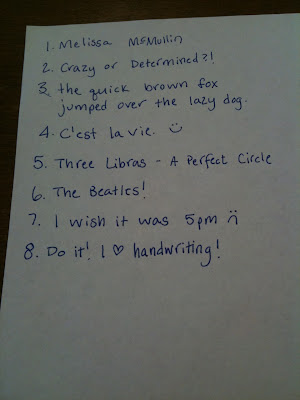 1. Melissa McMullin
2. Crazy or Determined?!
3. the quick brown fox
jumped over the lazy dog.
4. C'est la vie. :)
5. Three Libras - A Perfect Circle
6. The Beatles!
7. I wish it was 5pm :(
8. Do it! I ♡ handwriting!